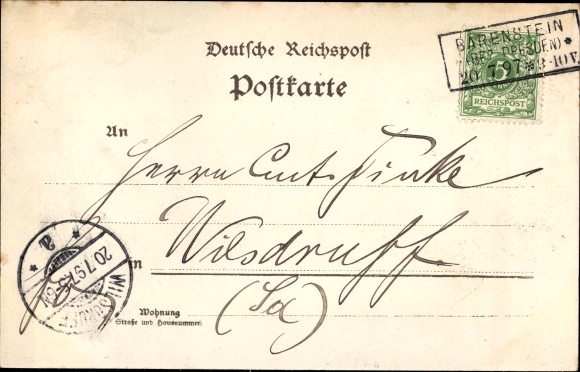 Deutsche Reichspost
Postkarte
BÄRENSTEIN
(BEZ. DRESDEN) *
20 7.97 * 8-10V.
5
REICHSPOST
An
Herrn Curt Finke
in Wilsdruff.
(Sa)
Wohnung
(Straße und Hausnummer)
WILSDRUFF
20.7.97